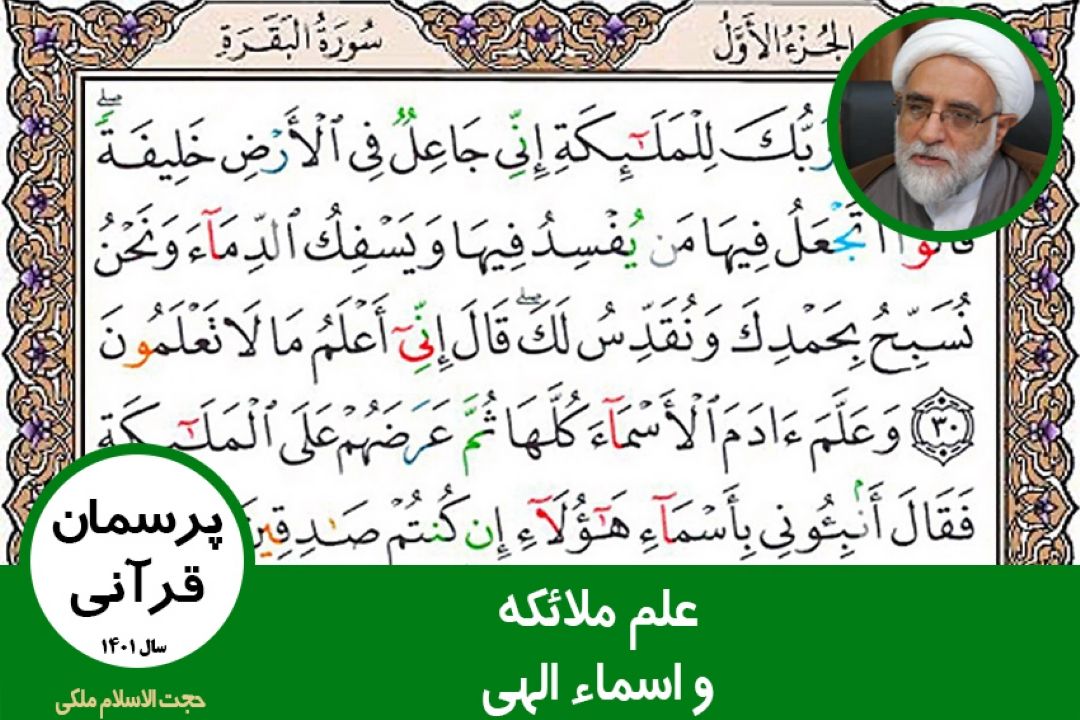 الجُزْءُ الأَوَّلُ
سُورَةُ الْبَقَرَةِ
رَبُّكَ لِلْمَلَـٰٓئِكَةِ إِنِّى جَاعِلٌ فِى ٱلْأَرْضِ خَلِيفَةًۖ
قَالُوٓا۟ أَتَجْعَلُ فِيهَا مَن يُفْسِدُ فِيهَا وَيَسْفِكُ ٱلدِّمَآءَ وَنَحْنُ
نُسَبِّحُ بِحَمْدِكَ وَنُقَدِّسُ لَكَۖ قَالَ إِنِّىٓ أَعْلَمُ مَا لَا تَعْلَمُونَ
٣٠ وَعَلَّمَ ءَادَمَ ٱلْأَسْمَآءَ كُلَّهَا ثُمَّ عَرَضَهُمْ عَلَى ٱلْمَلَـٰٓئِكَةِ
فَقَالَ أَنۢبِـُٔونِى بِأَسْمَآءِ هَـٰٓؤُلَآءِ إِن كُنتُمْ صَـٰدِقِينَ
پرسمان
قرآنی
سال ۱۴۰۱
حجت الاسلام ملکی
علم ملائکه
و اسماء الهی